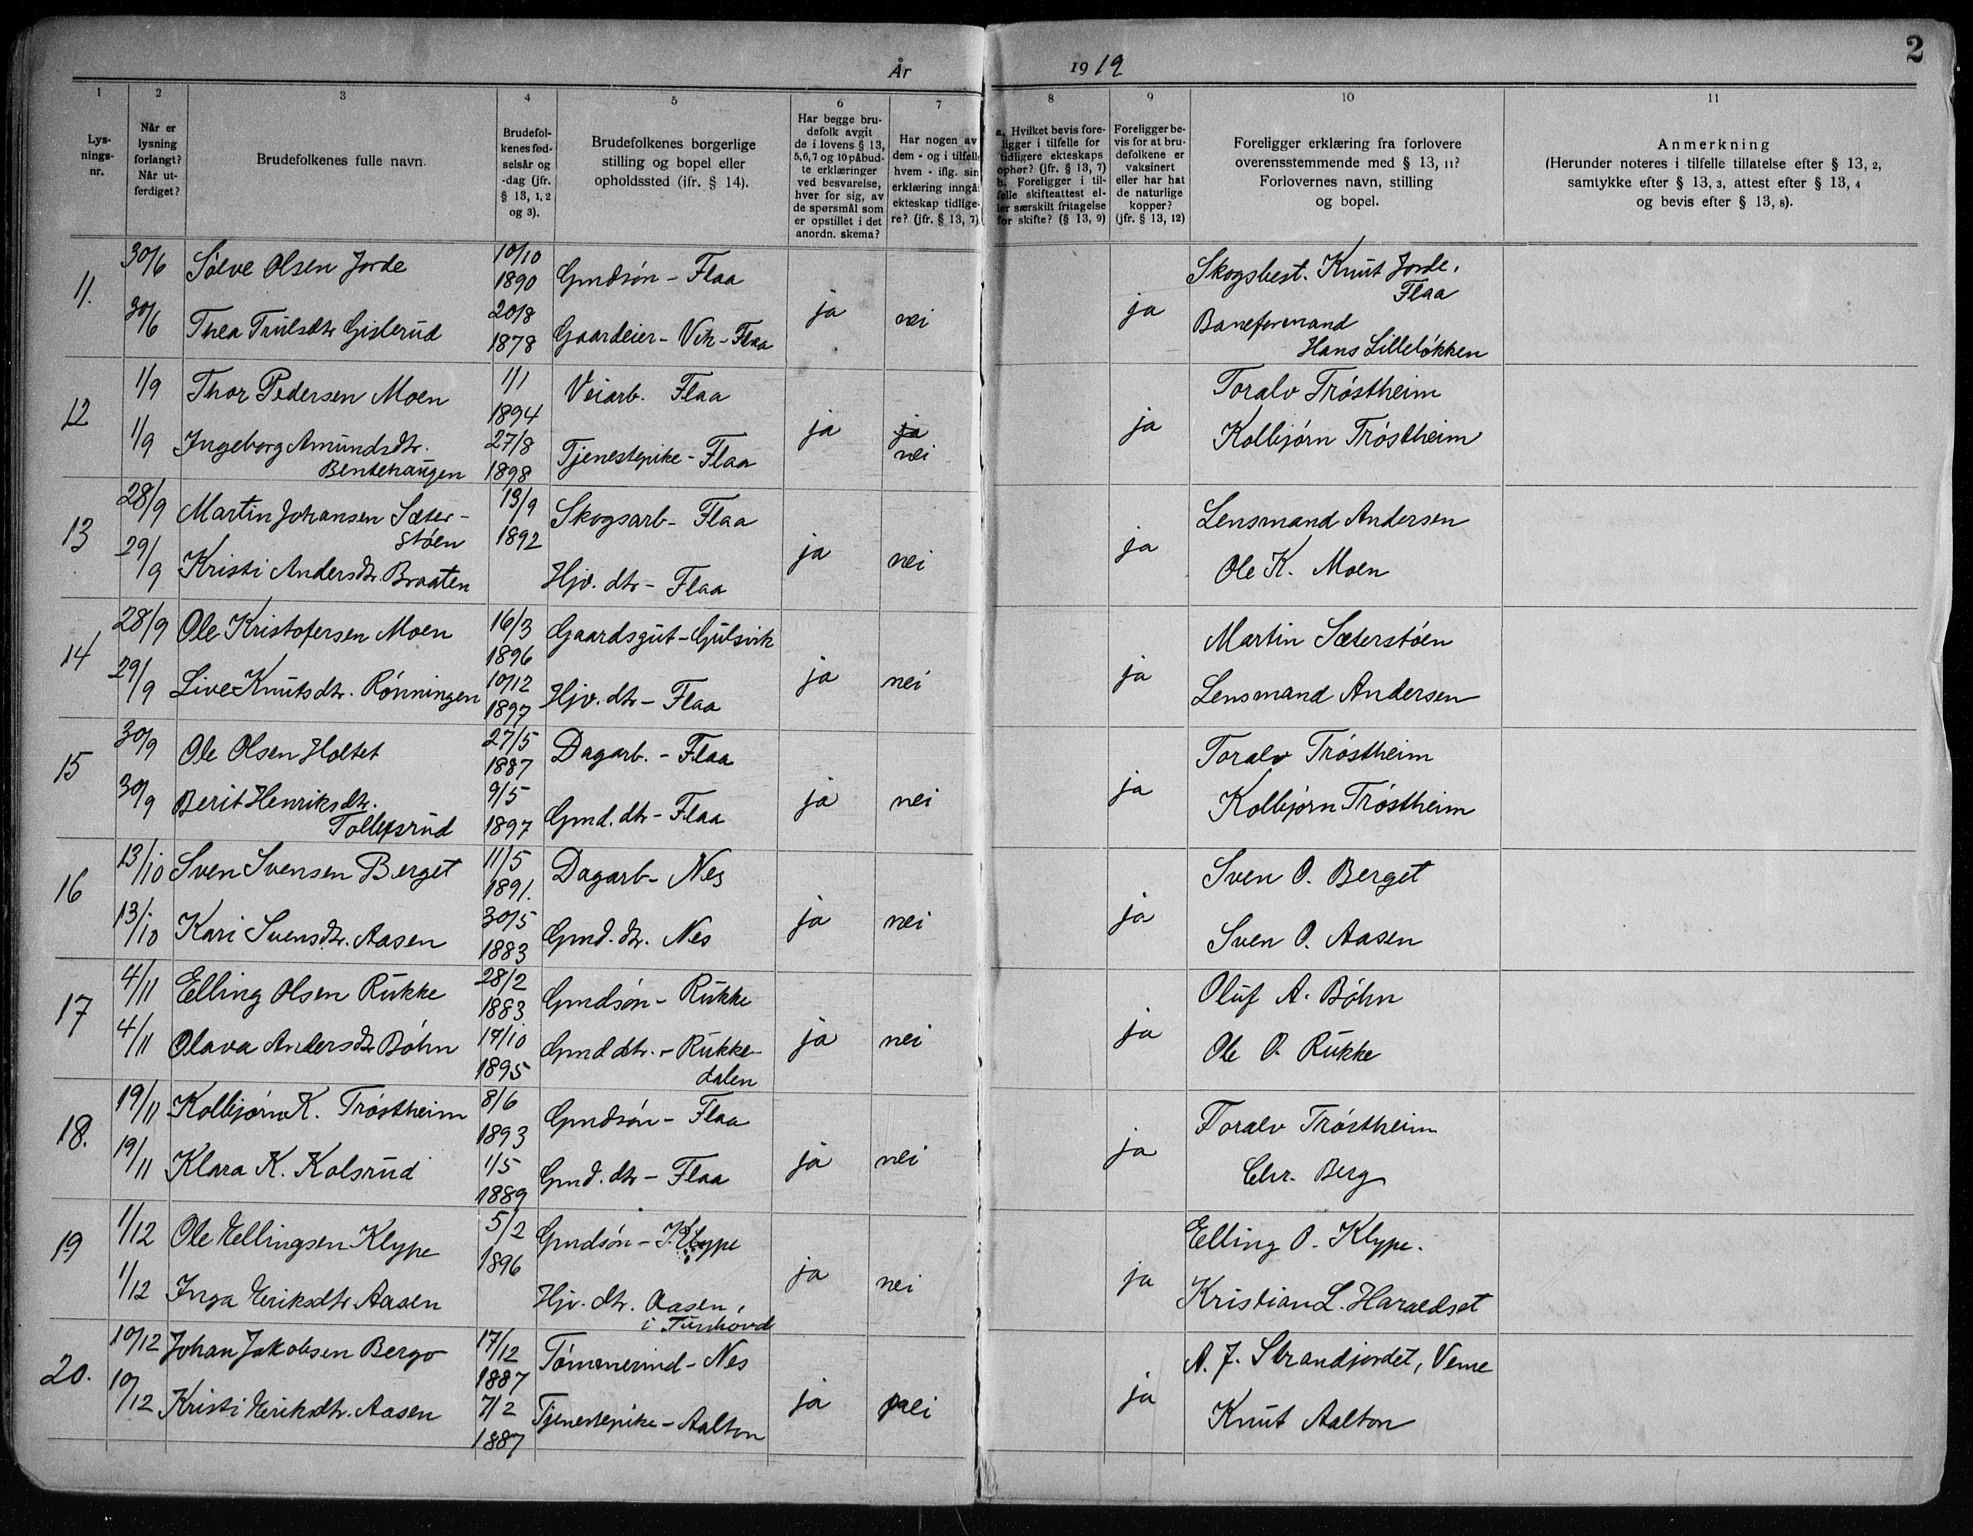 År 1919
2
1 2 3 4 5 6 7 8 9 10 11
Lys-
nings-
nr.
Når er
lysning
forlangt?
Når ut-
ferdiget?
Brudefolkenes fulle navn.
Brudefol-
kenes fød-
selsår og
-dag (jfr.
§ 13, 1, 2
og 3).
Brudefolkenes borgerlige
stilling og bopel eller
opholdssted (ifr. § 14).
Har begge bru-
defolk avgit
de i lovens § 13,
5,6,7 og 10 påbud-
te erklæringer
ved besvarelse,
hver for sig, av
de spørsmål som
er opstillet i det
anordn. skema?
Har nogen av
dem - og i tilfelle
hvem - iflg. sin
erklæring inngåt
ekteskap tidlige-
re? (jfr. § 13, 7)
a. Hvilket bevis fore-
ligger i tilfelle for
tidligere ekteskaps
ophør? (jfr. § 13, 7)
b. Foreligger i til-
felle skifteattest el-
ler særskilt fritagelse
for skifte? (§ 13, 9)
Foreligger be-
vis for at bru-
defolkene er
vaksinert
eller har hat
de naturlige
kopper?
(jfr. § 13, 12)
Foreligger erklæring fra forlovere
overensstemmende med § 13, 11?
Forlovernes navn, stilling
og bopel.
Anmerkning
(Herunder noteres i tilfelle tillatelse efter § 13, 2,
samtykke efter § 13, 3, attest efter § 13, 4
og bevis efter § 13, 8).
11. 30/6 Søeve Olsen Jorde 10/10 1890 Gmdsøn - Flaa ja nei ja Skogsbest. Knut Jorde,
Flaa
30/6 Thea Trulsdtr Gislerud 20/8 1878 Gaardeier - Vik - Flaa Baneformand
Hans Lilleløkken
12 1/9 Thor Pedersen Moen 1/1 1894 Veiarb. Flaa ja ja nei ja Toralv Trøstheim
1/9 Ingeborg Amundsdtr.
Bentehaugen 27/8 1898 Tjenestepike - Flaa Kolbjørn Trøstheim
13 28/9 Martin Johansen Sæter-
støen 13/9 1892 Skogsarb - Flaa ja nei ja Lensmand Andersen
29/9 Kristi Andersdtr. Braaten Hjv. dtr - Flaa Ole K. Moen
14 28/9 Ole Kristofersen Moen 16/3 1896 Gaardsgut - Gulsvik ja nei ja Martin Sæterstøen
29/9 Live Knutsdtr. Rønningen 10/12 1897 Hjv. dtr - Flaa Lensmand Andersen
15 30/9 Ole Olsen Holtet 27/5 1887 Dagarb. - Flaa ja nei ja Toralv Trøstheim
30/9 Berit Henriksdtr.
Tollefsrud 9/5 1897 Gmd. dtr - Flaa Kolbjørn Trøstheim
16 13/10 Sven Svensen Berget 11/5 1891. Dagarb - Nes ja nei ja Sven O. Berget
13/10 Kari Svensdtr. Aasen 30/5 1883 Gmd. dtr. Nes Sven O. Aasen
17 4/11 Elling Olsen Rukke 28/2 1883 Gmdsøn - Rukke ja nei ja Oluf A. Bøhn
4/11 Olava Andersdtr Bøhn 17/10 1895 Gmd dtr. - Rukke-
dalen Ole O. Rukke
18. 19/11 Kolbjørn K. Trøstheim 8/6 1893 Gmdsøn - Flaa ja nei ja Toralv Trøstheim
19/11 Klara K. Kolsrud 1/5 1889 Gmd. dtr - Flaa Chr. Berg
19 1/12 Ole Ellingsen Klype 5/2 1896 Gmdsøn - Klype ja nei ja Elling O. Klype.
1/12 Inga Eriksdtr Aasen Hjv. dtr. Aasen,
i Tunhovd Kristian L. Haraldset
20. 10/12 Johan Jakobsen Bergo 17/12 1887 Tømmermd - Nes ja nei ja A. J. Strandjordet, Veme
10/12 Kristi Eriksdtr. Aasen 7/2 1887 Tjenestepike - Aalton Knut Aalton